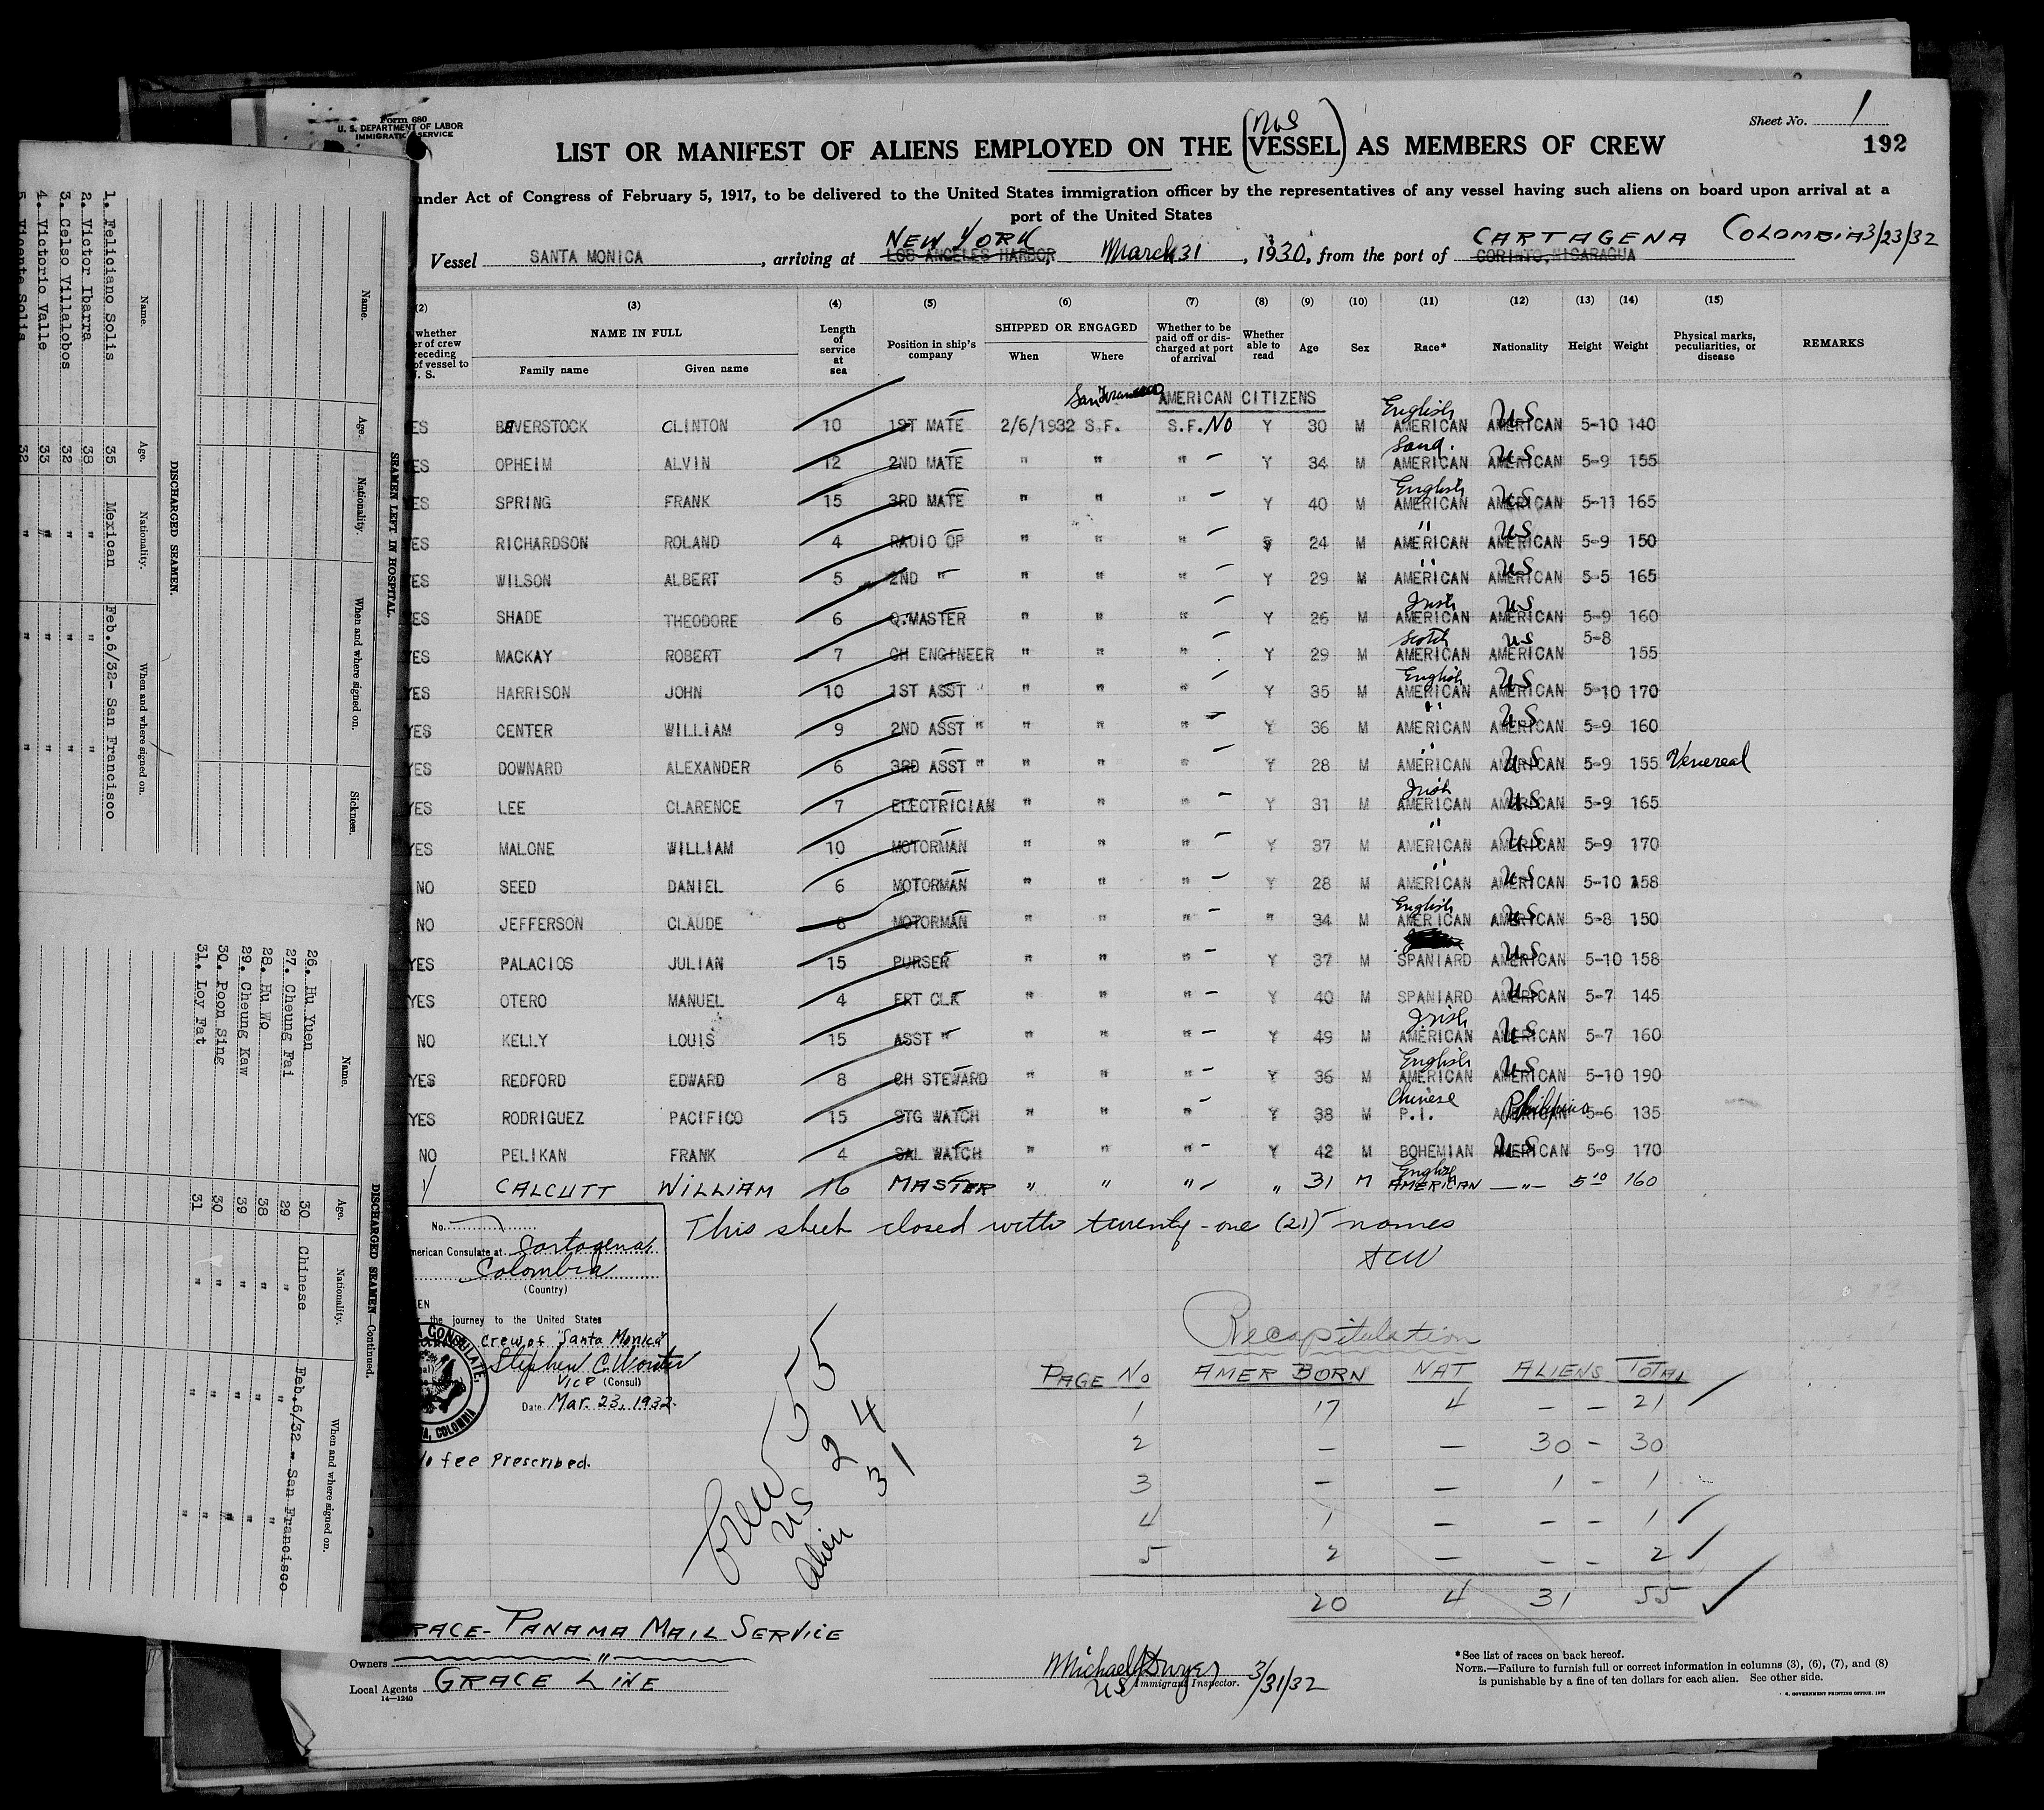 Form 680
U. S. DEPARTMENT OF LABOR
IMMIGRATION SERVICE
Sheet No. 1
192
LIST OR MANIFEST OF ALIENS EMPLOYED ON THE (VESSEL) AS MEMBERS OF CREW
under Act of Congress of February 5, 1917, to be delivered to the United States immigration officer by the representatives of any vessel having such aliens on board upon arrival at a
port of the United States
NEW YORK CARTAGENA COLOMBIA 3/23/32
Vessel SANTA MONICA, arriving at LOS ANGELES HARBOR, March 31, 1930, from the port of CORINTO, NICARAGUA
(2) (3) (4) (5) (6) (7) (8) (9) (10) (11) (12) (13) (14) (15)
whether
er of crew
receding
of vessel to
U. S.
NAME IN FULL
Family name Given name
Length of service at sea
Position in ship's company
SHIPPED OR ENGAGED
When Where
Whether to be paid off or discharged at port of arrival
Whether able to read
Age Sex Race* Nationality Height Weight
Physical marks, peculiarities, or disease
REMARKS
San Francisco AMERICAN CITIZENS
ES BEVERSTOCK CLINTON 10 1ST MATE 2/6/1932 S.F. S.F. No Y 30 M English AMERICAN US AMERICAN 5-10 140
ES OPHEIM ALVIN 12 2ND MATE " " " - Y 34 M Scand. AMERICAN US AMERICAN 5-9 155
ES SPRING FRANK 15 3RD MATE " " " - Y 40 M English AMERICAN US AMERICAN 5-11 165
ES RICHARDSON ROLAND 4 RADIO OP " " " - 24 M " AMERICAN US AMERICAN 5-9 150
ES WILSON ALBERT 5 2ND " " " " - Y 29 M " AMERICAN US AMERICAN 5-5 165
ES SHADE THEODORE 6 Q.MASTER " " " - Y 26 M Irish AMERICAN US AMERICAN 5-9 160
YES MACKAY ROBERT 7 CH ENGINEER " " " - Y 29 M Scotch AMERICAN US AMERICAN 5-8 155
YES HARRISON JOHN 10 1ST ASST " " " " - Y 35 M English AMERICAN US AMERICAN 5-10 170
YES CENTER WILLIAM 9 2ND ASST " " " " - Y 36 M " AMERICAN US AMERICAN 5-9 160
YES DOWNARD ALEXANDER 6 3RD ASST " " " " - Y 28 M " AMERICAN US AMERICAN 5-9 155 Venereal
YES LEE CLARENCE 7 ELECTRICIAN " " " - Y 31 M Irish AMERICAN US AMERICAN 5-9 165
YES MALONE WILLIAM 10 MOTORMAN " " " - Y 37 M " AMERICAN US AMERICAN 5-9 170
NO SEED DANIEL 6 MOTORMAN " " " - Y 28 M " AMERICAN US AMERICAN 5-10 158
NO JEFFERSON CLAUDE 8 MOTORMAN " " " - " 34 M English AMERICAN US AMERICAN 5-8 150
YES PALACIOS JULIAN 15 PURSER " " " - Y 37 M SPANIARD US AMERICAN 5-10 158
YES OTERO MANUEL 4 FRT CLK " " " - Y 40 M SPANIARD US AMERICAN 5-7 145
NO KELLY LOUIS 15 ASST " " " " - Y 49 M Irish AMERICAN US AMERICAN 5-7 160
YES REDFORD EDWARD 8 CH STEWARD " " " - Y 36 M English AMERICAN US AMERICAN 5-10 190
YES RODRIGUEZ PACIFICO 15 STG WATCH " " " - Y 38 M Chinese P.I. Philipino AMERICAN 5-6 135
NO PELIKAN FRANK 4 SAL WATCH " " " - Y 42 M BOHEMIAN US AMERICAN 5-9 170
CALCUTT WILLIAM 16 MASTER " " " - " 31 M English AMERICAN -"- 5 10 160
This sheet closed with twenty-one (21) names
No.
merican Consulate at Cartagena,
Colombia
(Country)
EEN
the journey to the United States
Crew of "Santa Monica"
Stephen C. Worster
Vice (Consul)
Date Mar. 23, 1932.
No fee Prescribed.
CONSULATE,
COLOMBIA
Crew 55
US 24
Alien 31
Recapitulation
PAGE No AMER BORN NAT ALIENS TOTAL
1 17 4 - - 21
2 - - 30 - 30
3 - - 1 - 1
4 1 - - - 1
5 2 - - - 2
20 4 31 55
RACE-PANAMA MAIL SERVICE
Owners "
Local Agents GRACE LINE
14-1240
Michael J Dwyer 3/31/32
US Immigrant Inspector.
*See list of races on back hereof.
NOTE.—Failure to furnish full or correct information in columns (3), (6), (7), and (8)
is punishable by a fine of ten dollars for each alien. See other side.
GOVERNMENT PRINTING OFFICE
SEAMEN LEFT IN HOSPITAL.
Name. Age. Nationality. When and where signed on. Sickness.
DISCHARGED SEAMEN.
Name. Age. Nationality. When and where signed on.
1. Feliciano Solis 35 Mexican Feb.6/32- San Francisco
2. Victor Ibarra 38 " " "
3. Celso Villalobos 32 " " "
4. Victorio Valle 33 " " "
5. Vicente Solis 32 " " "
DISCHARGED SEAMEN—Continued.
Name. Age. Nationality. When and where signed on.
26. Hu Yuen 30 Chinese Feb.6/32 - San Francisco
27. Cheung Fai 29 " " "
28. Hu Wo 38 " " "
29. Cheung Kaw 39 " " "
30. Poon Sing 30 " " "
31. Loy Fat 31 " " "